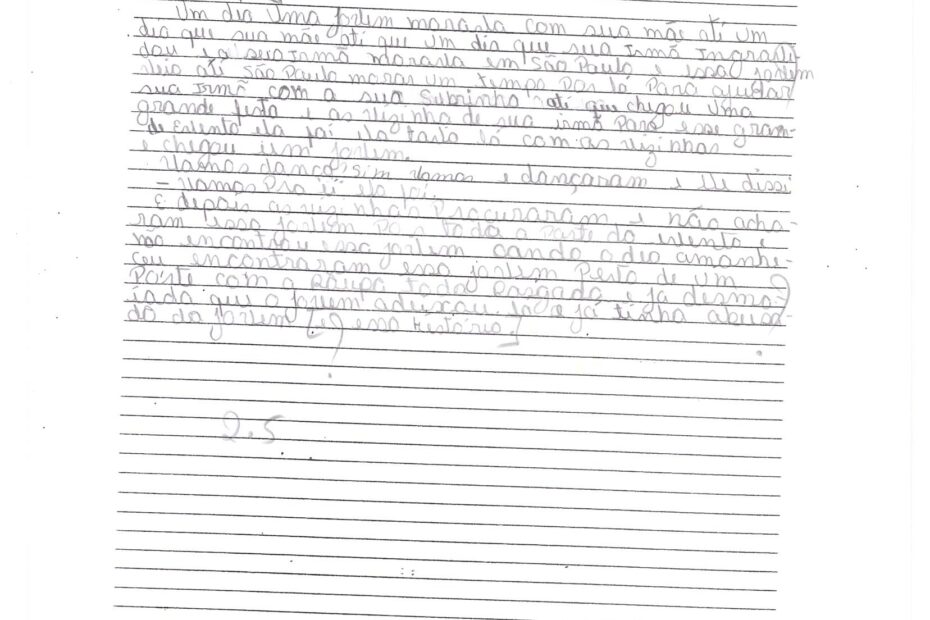 Um dia Uma jovem morava com sua mãe até um
dia que sua mãe até que um dia que sua Irmã Ingravi-
dou e a sera Irmã Morava em São Paulo e essa jovem
veio até São Paulo morar um tempo por lá Para ajudar
sua Irmã com a sua Subrinha até que chegou Uma
grande festa e as vizinha de sua irmã Para esse gran-
de Evento ela foi ela tava lá com as vizinhas
e chegou um jovem.
Vamos dança, sim vamos e dançaram e ele dissi
– Vamos Pra li ela foi.
E depois as vizinhas Procuraram e não acha-
ram essa jovem Por toda a Parte do evento e
não encontrou essa jovem cando o dia amanhe-
ceu encontraram essa jovem Perto de um
Poste com a Roupa toda Rasgada e já desma-
iada que o jovem adeixou la e já tinha abusa-
do da jovem essa história.
2.5